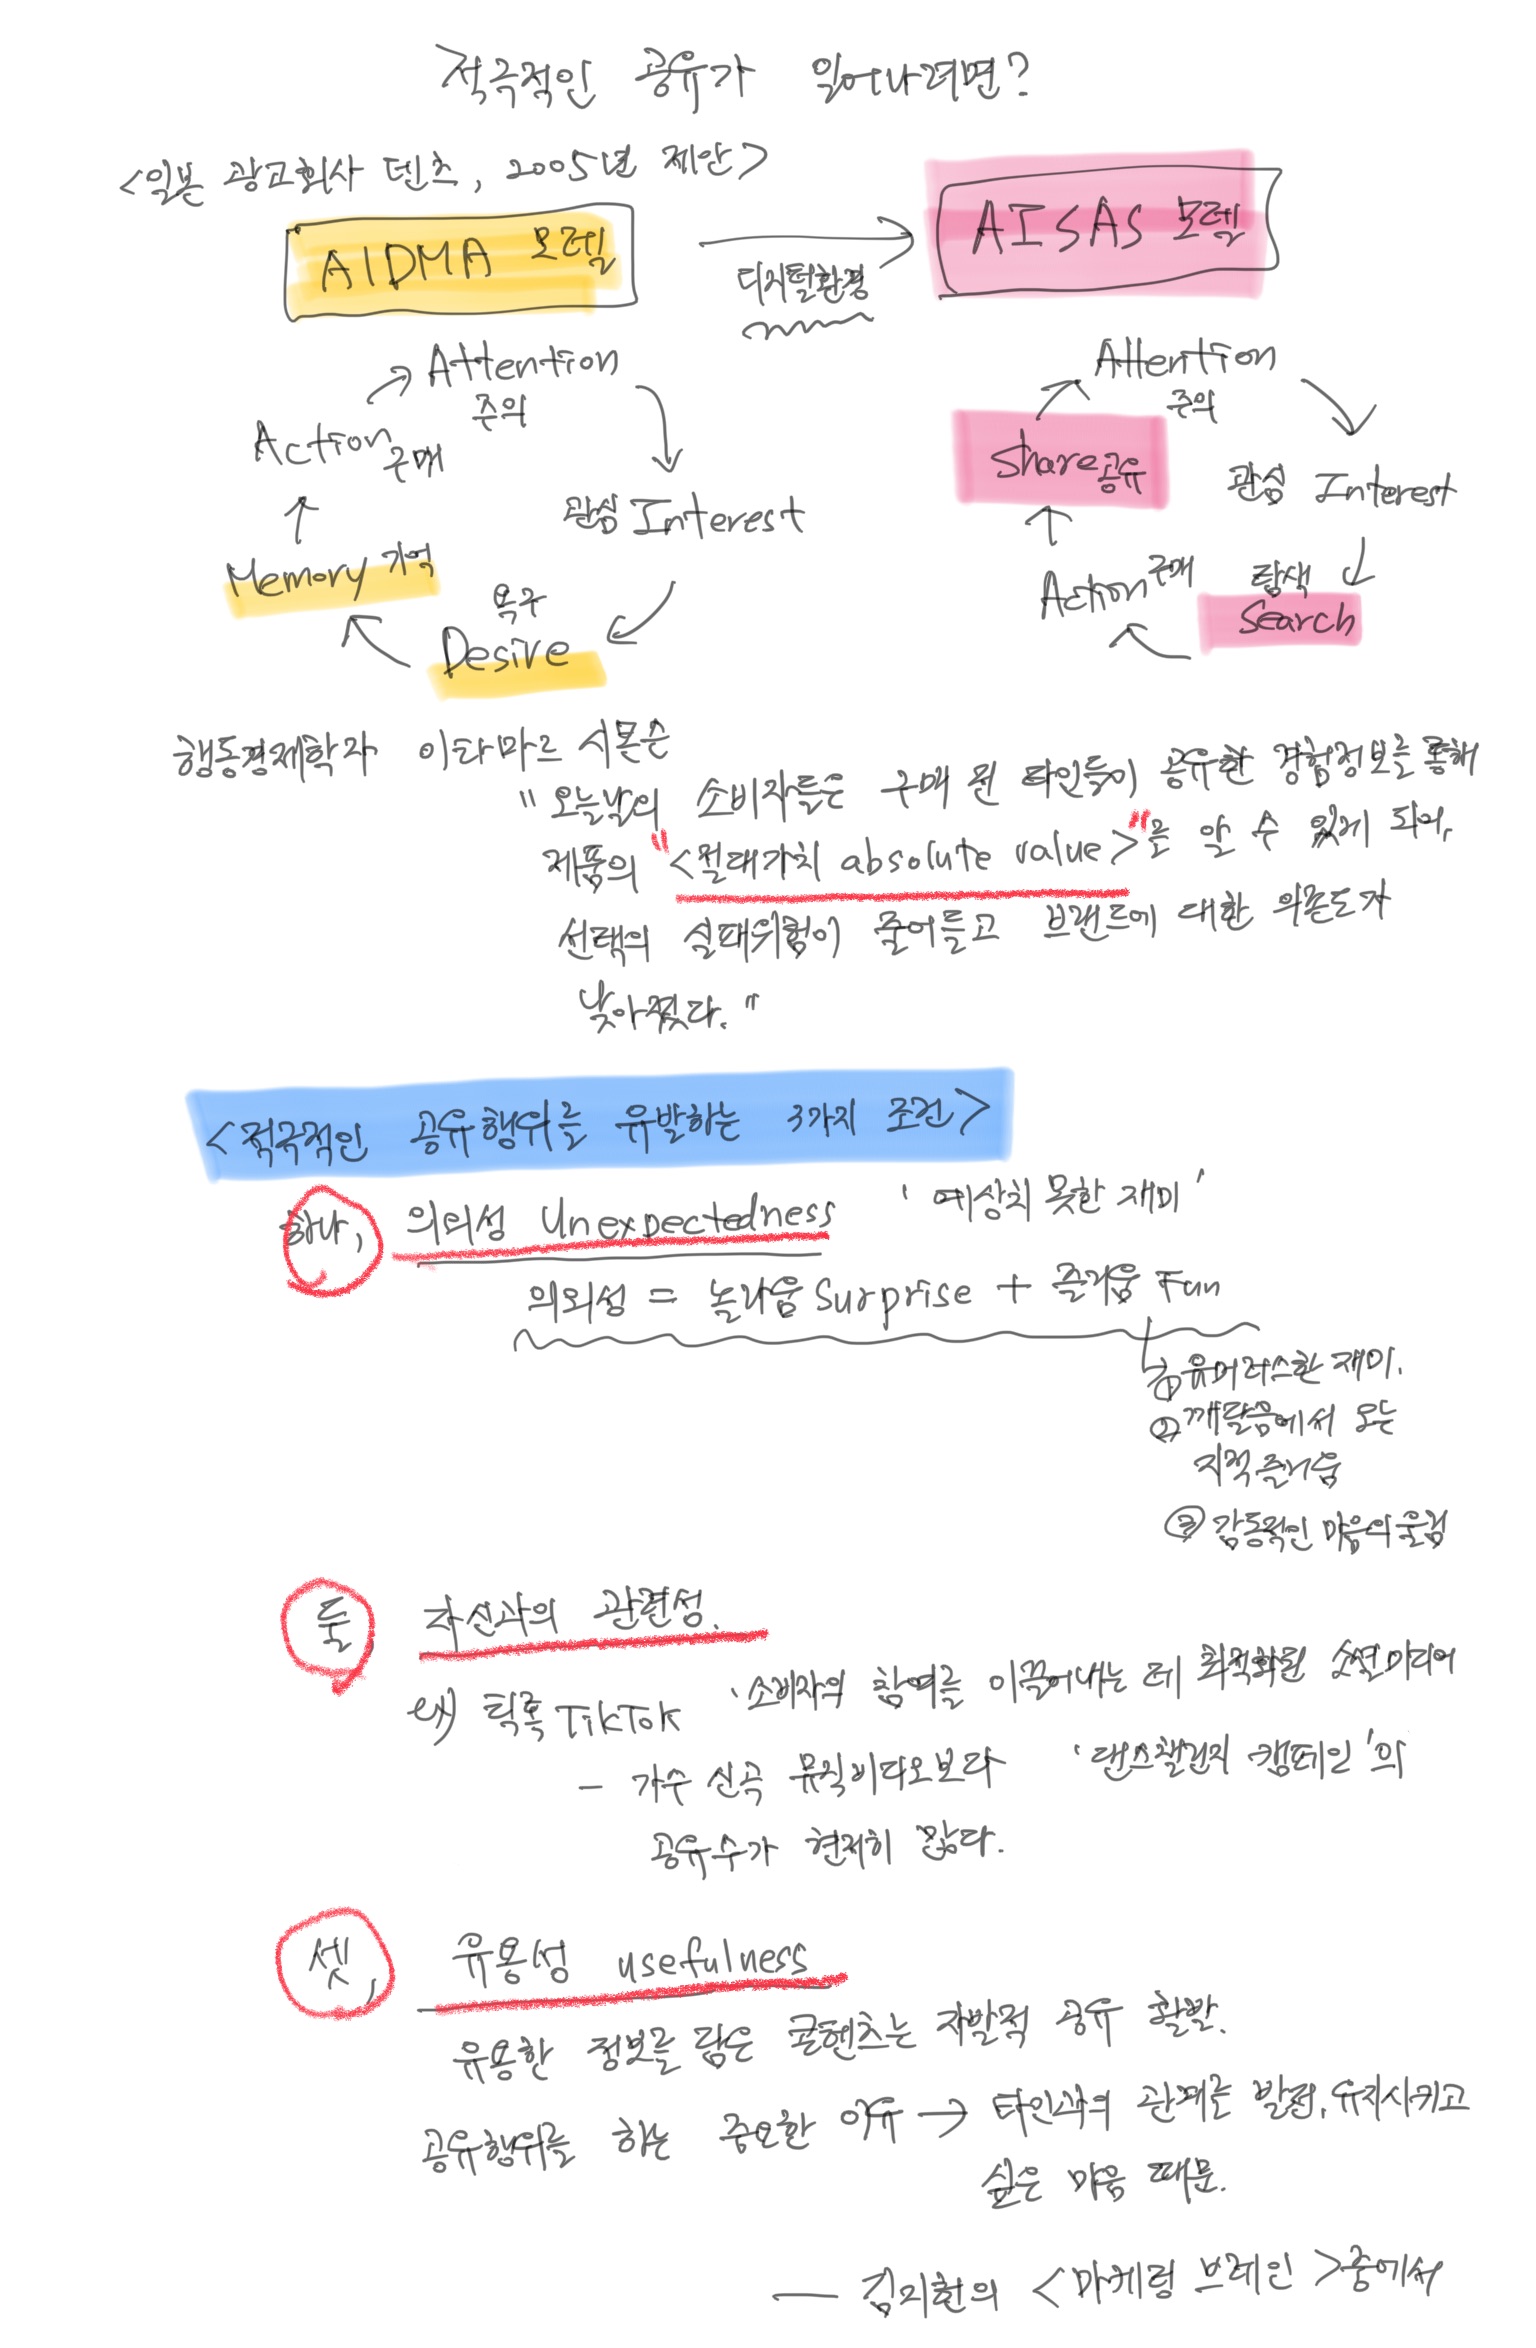 적극적인 공유가 일어나려면?
<일본 광고회사 덴츠, 2005년 제안>
AIDMA 모델
디지털환경
AISAS 모델
Attention
주의
관심 Interest
욕구
Desire
Memory 기억
Action 구매
Attention
주의
관심 Interest
탐색
Search
Action 구매
Share 공유
행동경제학자 이타마르 시몬슨
"오늘날의 소비자들은 구매 뒤 타인들이 공유한 경험정보를 통해
제품의 "<절대가치 absolute value>"를 알 수 있게 되어,
선택의 실패위험이 줄어들고 브랜드에 대한 의존도가
낮아졌다."
<적극적인 공유행위를 유발하는 3가지 조건>
하나, 의외성 Unexpectedness '예상치 못한 재미'
의외성 = 놀라움 Surprise + 즐거움 Fun
① 유머러스한 재미.
② 깨달음에서 오는
지적 즐거움
③ 감동적인 마음의 울림
둘, 자신과의 관련성.
ex) 틱톡 TikTok '소비자의 참여를 이끌어내는 데 최적화된 소셜미디어
- 가수 신곡 뮤직비디오보다 '댄스챌린지 캠페인'의
공유수가 현저히 많다.
셋, 유용성 usefulness
유용한 정보를 담은 콘텐츠는 자발적 공유 활발.
공유행위를 하는 중요한 이유 → 타인과의 관계를 발전, 유지시키고
싶은 마음 때문.
— 김지헌의 <마케팅 브레인> 중에서